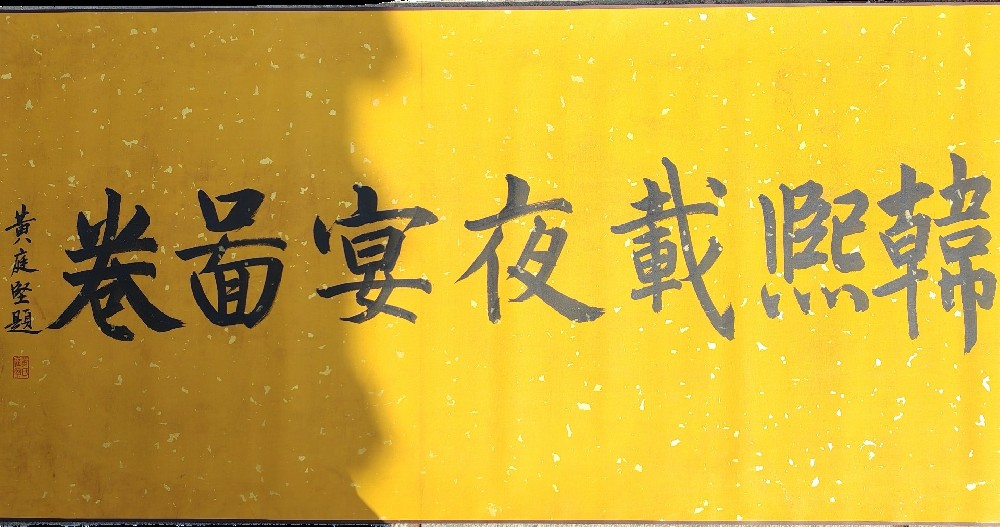 韓熙載夜宴啚卷
黃庭堅題